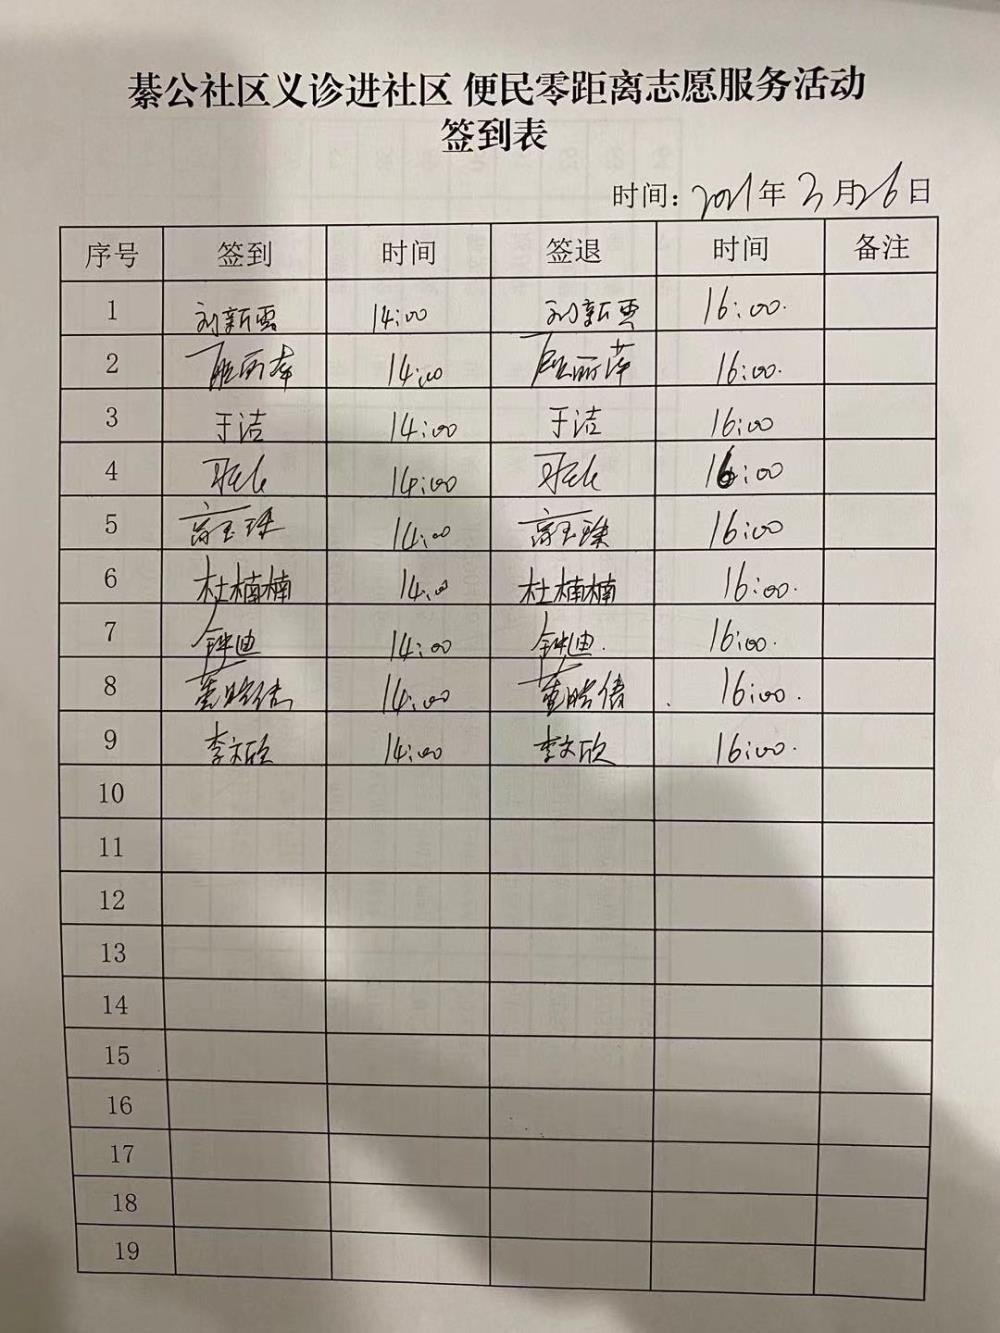 綦公社区义诊进社区 便民零距离志愿服务活动
签到表
时间: 2021年3月26日
序号 签到 时间 签退 时间 备注
1 刘新雪 14:00 刘新雪 16:00.
2 丽萍 14:00 丽萍 16:00.
3 于洁 14:00 于洁 16:00
4 14:00 16:00
5 高玉珠 14:00 高玉珠 16:00
6 杜楠楠 14:00 杜楠楠 16:00.
7 钟迪 14:00 钟迪. 16:00.
8 董皓倩 14:00 董皓倩 16:00.
9 李文欣 14:00 李文欣 16:00.
10
11
12
13
14
15
16
17
18
19